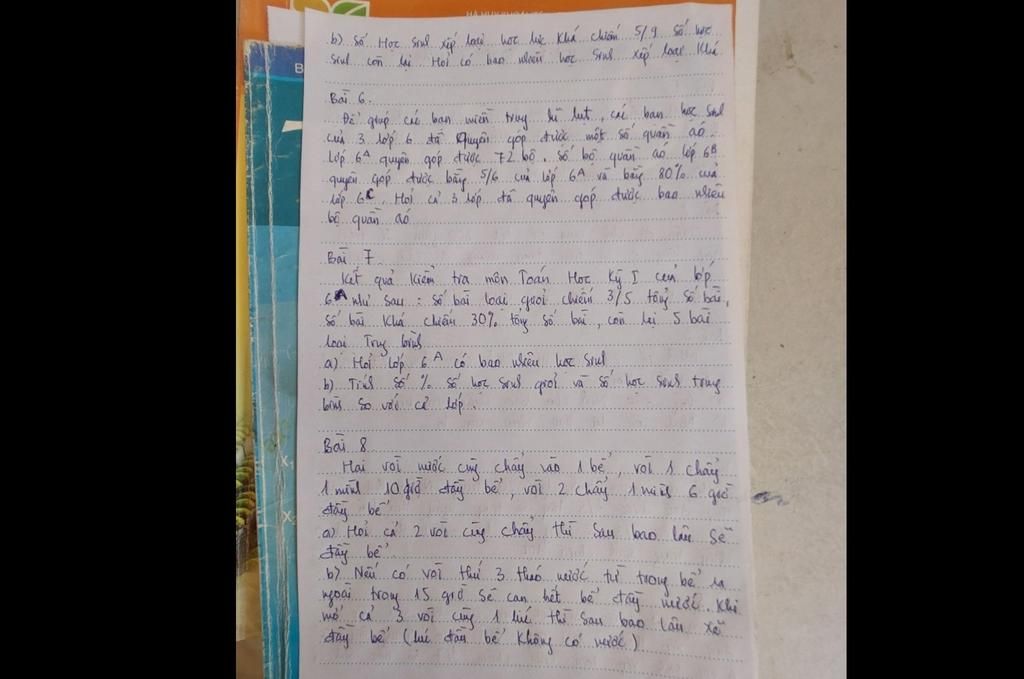 HÀ HUY KHOÁI
B
b) Số Học sinh xếp loại học lực Khá chiếm 5/9 số học
sinh còn lại. Hỏi có bao nhiêu học sinh xếp loại Khá
Bài 6.
Để giúp các bạn miền trung lũ lụt, các bạn học sinh
của 3 lớp 6 đã quyên góp được một số quần áo.
Lớp 6A quyên góp được 72 bộ. Số bộ quần áo lớp 6B
quyên góp được bằng 5/6 của lớp 6A và bằng 80% của
lớp 6C. Hỏi cả 3 lớp đã quyên góp được bao nhiêu
bộ quần áo
Bài 7.
Kết quả kiểm tra môn Toán Học Kỳ I của lớp
6A như sau: số bài loại giỏi chiếm 3/5 tổng số bài,
số bài Khá chiếm 30% tổng số bài, còn lại 5 bài
loại Trung bình
a) Hỏi lớp 6A có bao nhiêu học sinh
b) Tính số % số học sinh giỏi và số học sinh trung
bình so với cả lớp.
Bài 8
Hai vòi nước cùng chảy vào 1 bể, vòi 1 chảy
1 mình 10 giờ đầy bể, vòi 2 chảy 1 mình 6 giờ
đầy bể
a) Hỏi cả 2 vòi cùng chảy thì sau bao lâu sẽ
đầy bể.
b) Nếu có vòi thứ 3 tháo nước từ trong bể ra
ngoài trong 15 giờ sẽ cạn hết bể đầy nước. Khi
mở cả 3 vòi cùng 1 lúc thì sau bao lâu sẽ
đầy bể (lúc đầu bể không có nước)
X1
X2